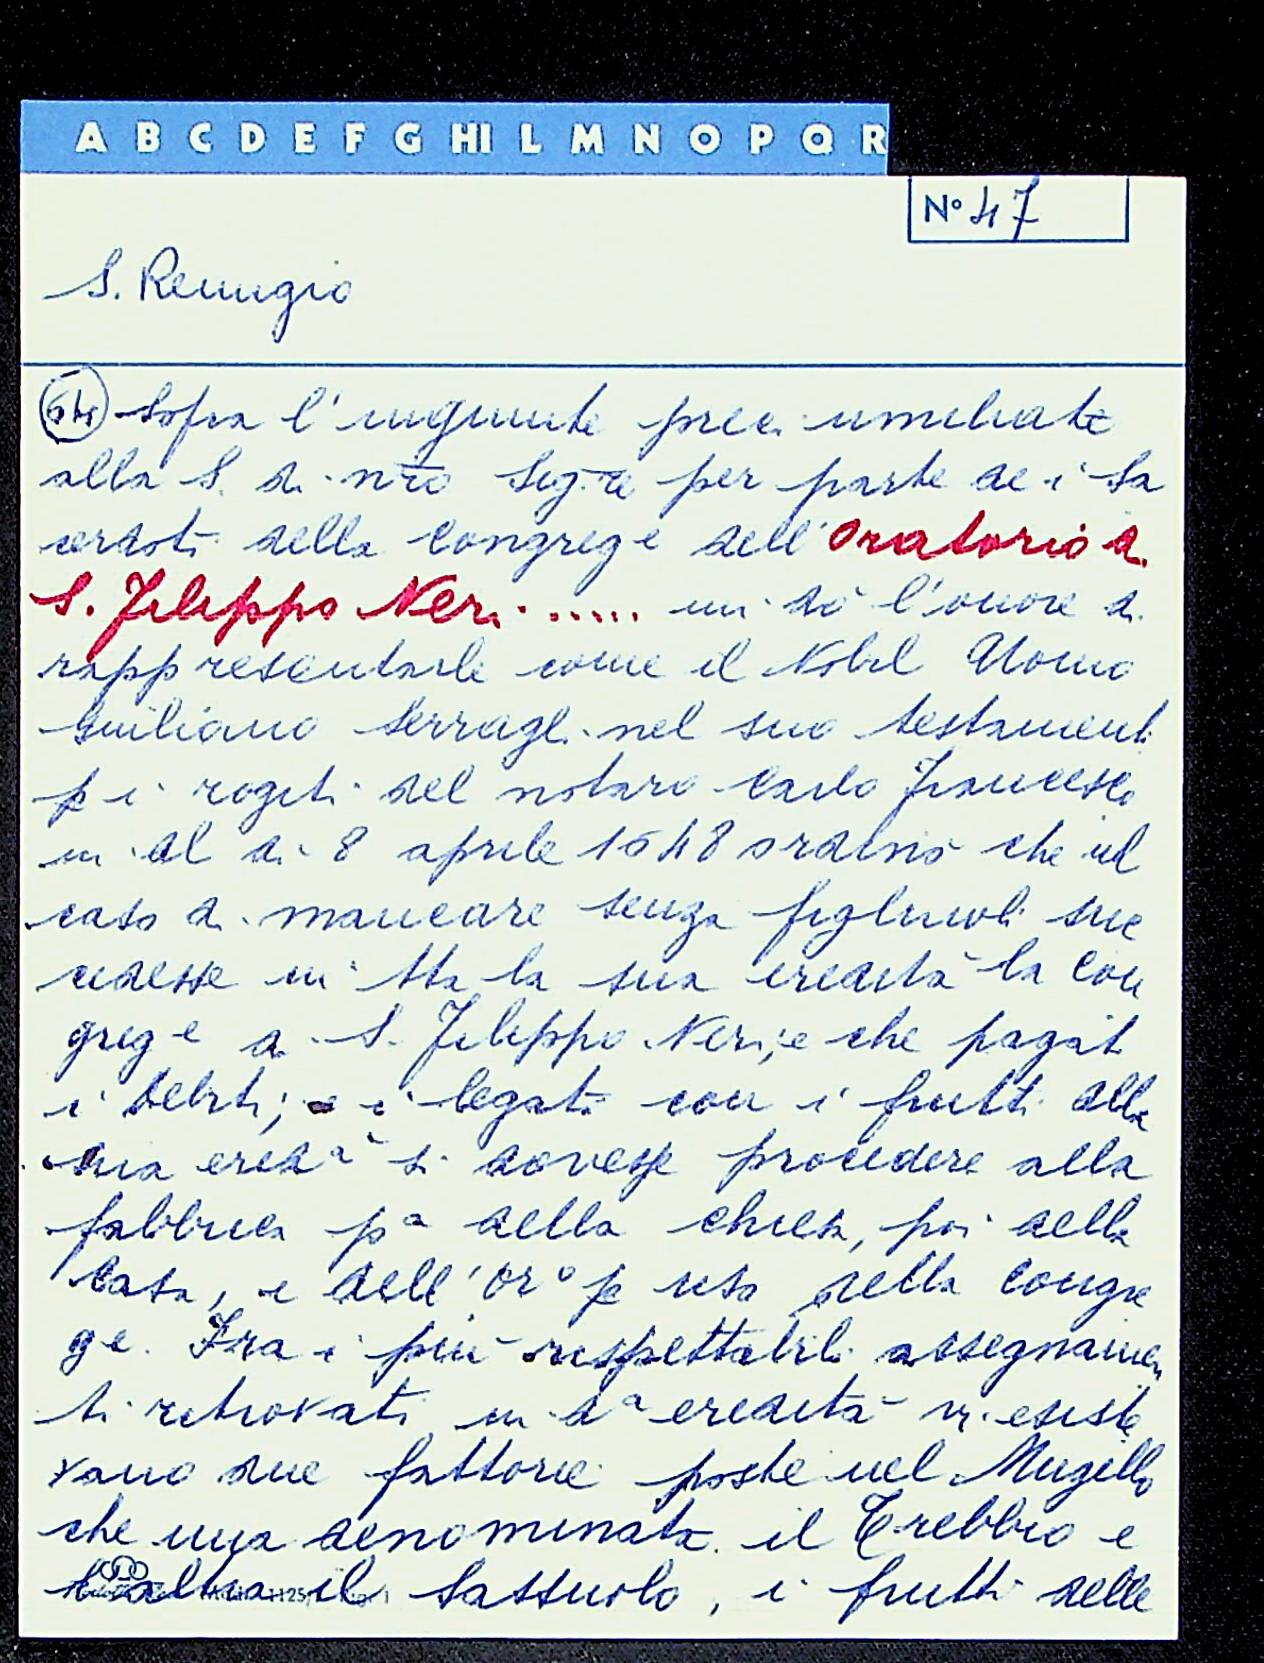 A B C D E F G HI L M N O P Q R
Nº 47
S. Remigio
64 Sopra l'ingiunte preci umiliate
alla S. di nro Sigre per parte de i Sa
cerdoti della Congrege dell'Oratorio di
S. Filippo Neri ..... mi dò l'onore di
rappresentarle come il Nobil Uomo
Giuliano Serragli nel suo testament
p i rogiti del notaro Carlo Francesco
al di 8 aprile 1648 ordinò che il
caso di mancare senza figliuoli suc
cedesse in tta la sua eredità la Con
grege di S. Filippo Neri; e che pagati
i debiti; e i legati con i frutti della
sua eredà si dovesse procedere alla
fabbrica pa della chiesa, poi della
Casa, e dell'oro p uso della Congre
ge. Fra i più rispettabili assegnamen
ti ritrovati in da eredità vi esiste
vano due fattorie poste nel Mugello
che una denominata il Trebbio e
l'altra il Sassuolo, i frutti delle